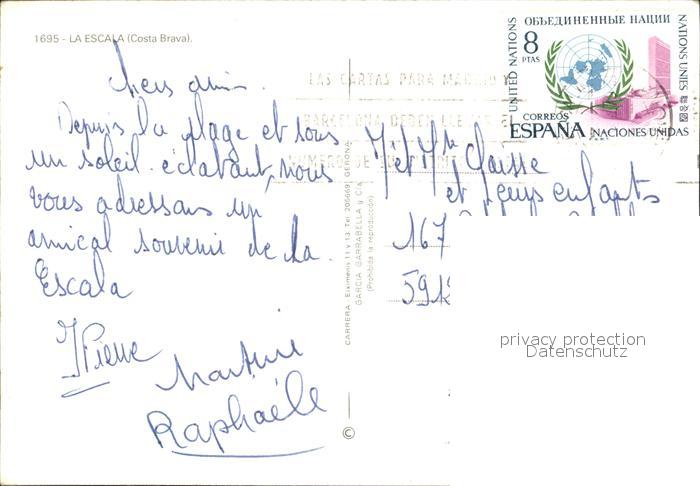 1695 - LA ESCALA (Costa Brava).
chers amis.
Depuis la plage et sous
un soleil éclatant, nous
vous adressons un
amical souvenir de la
Escala
JPierre
Martine
Raphaële
CARRERA. Eximenis 11 y 13. Tel. GERONA
GARCIA GARRABELLA y Cía.
(Prohibida la reproducción)
©
LAS CARTAS PARA MADRID Y
BARCELONA DEBEN LLEVAR EL
NUMERO DE
UNITED NATIONS
ОБЪЕДИНЕННЫЕ НАЦИИ
NATIONS UNIES
8
PTAS
CORREOS
ESPAÑA NACIONES UNIDAS
et Mme
et leurs enfants
167
privacy protection
Datenschutz